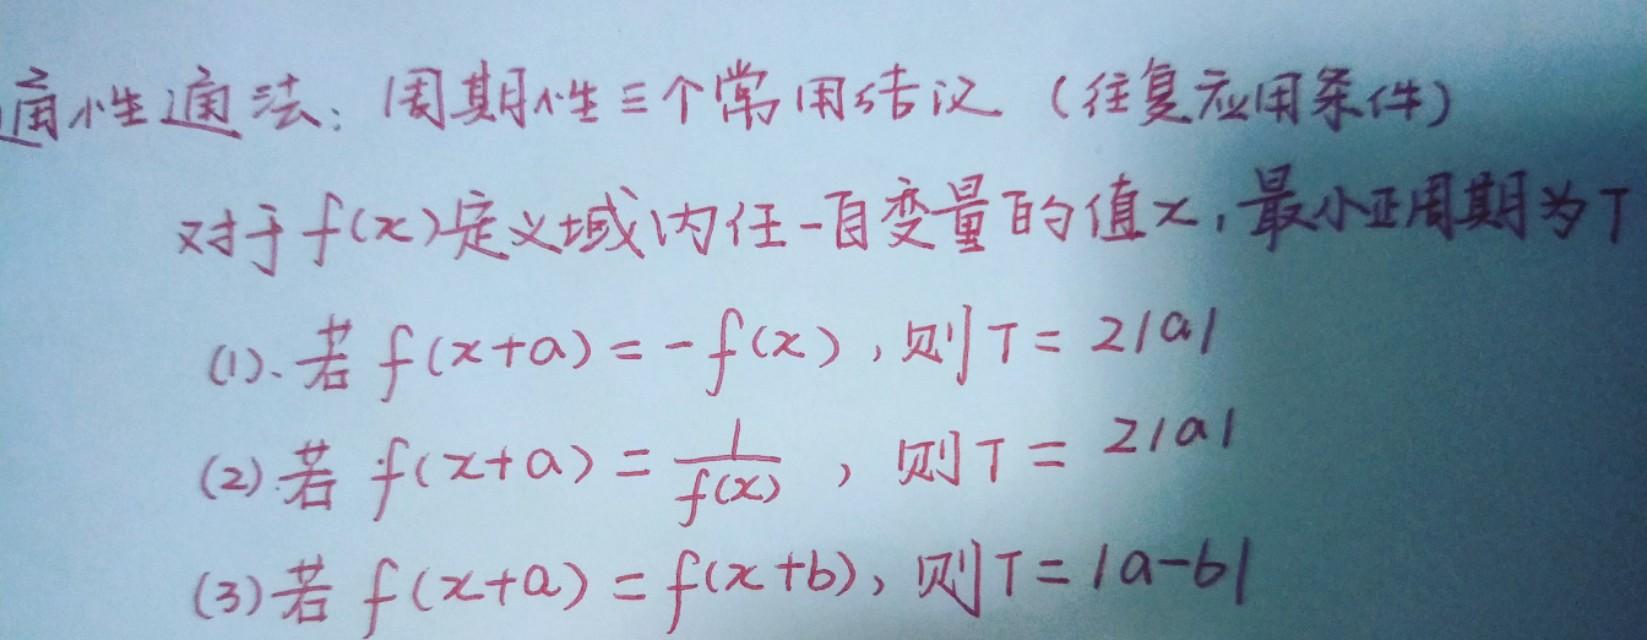 通性通法:周期性三个常用结议(往复应用条件)
对于f(x)定义域内任一自变量的值x,最小正周期为T
(1).若 f(x+a)=-f(x),则T=2|a|
(2).若 f(x+a)=1/f(x),则T=2|a|
(3)若 f(x+a)=f(x+b),则T=|a-b|